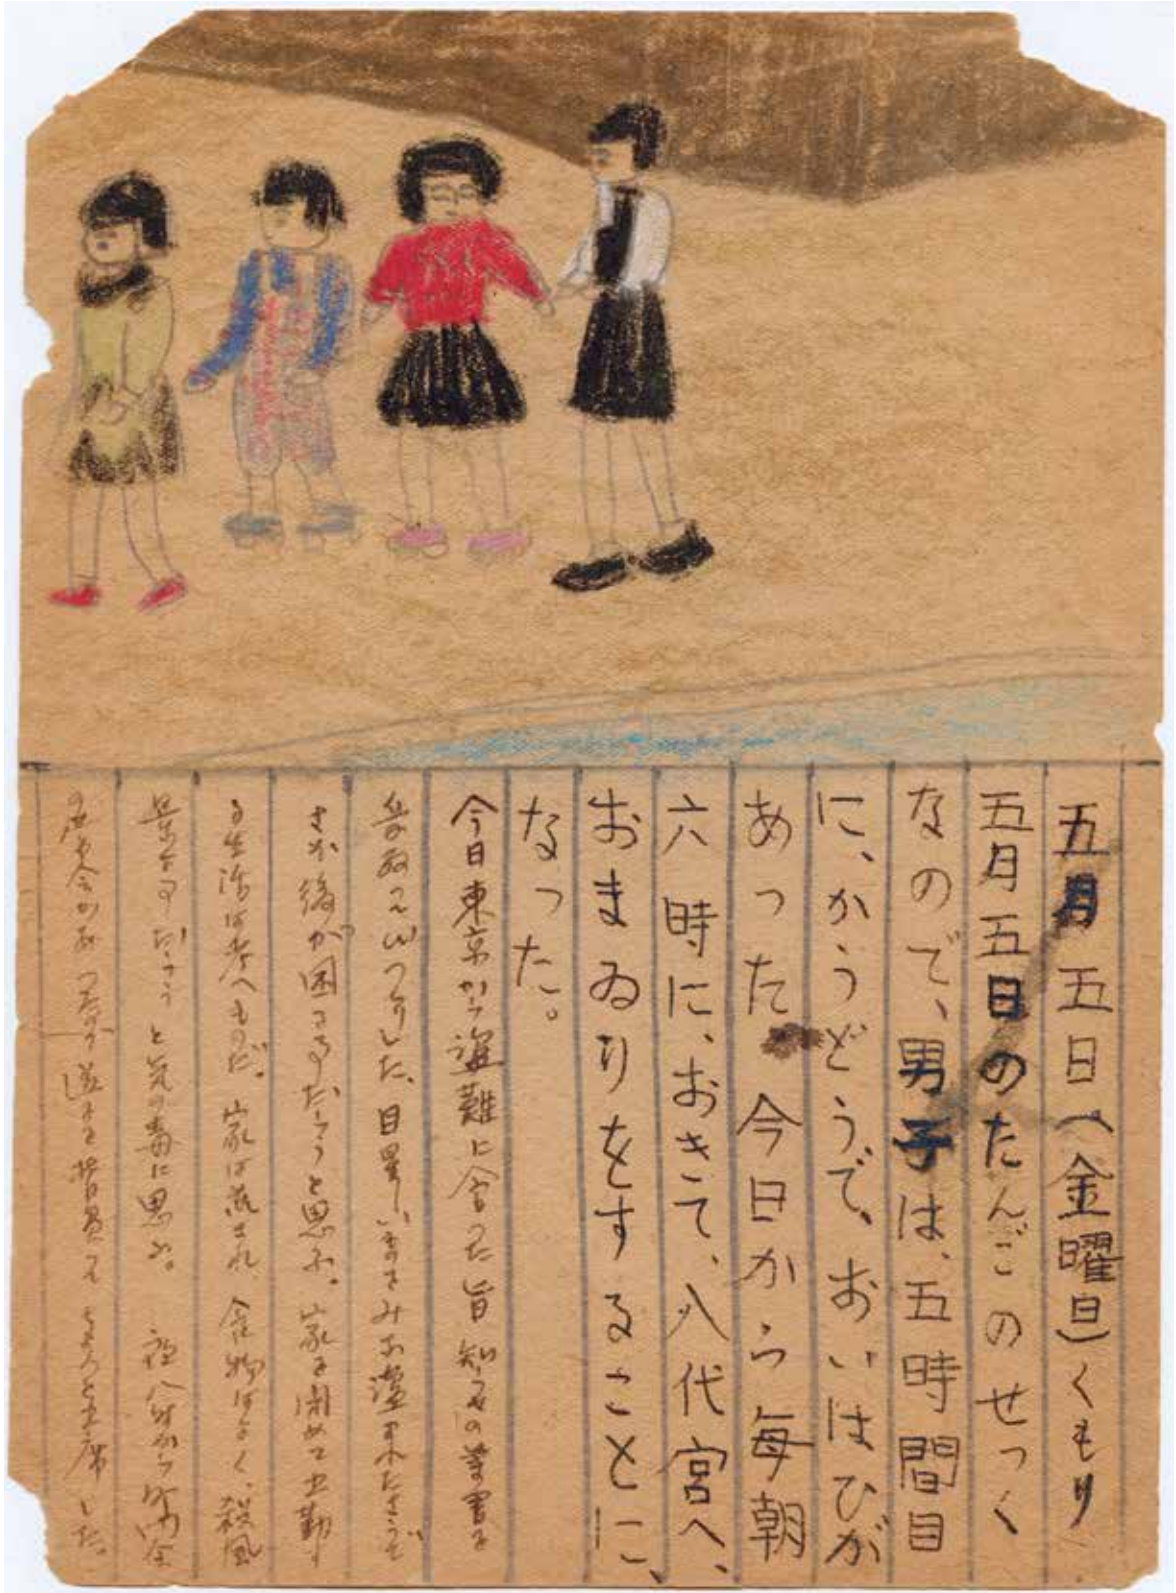 五月五日(金曜日)くもり
五月五日のたんごのせっく
なので、男子は、五時間目
に、かうどうで、おいはひが
あった。今日から毎朝
六時に、おきて、八代宮へ、
おまゐりをすることに、
なった。
今日東京から盗難に会った旨知らせの葉書を
た。目星いものみお濯
後が困るだらうと思ふ。家を閉めて出勤す
る生活は考へものだ。家は荒され食物はなく、殺風
景なだらうと気の毒に思ふ。夜八時から
出席した。